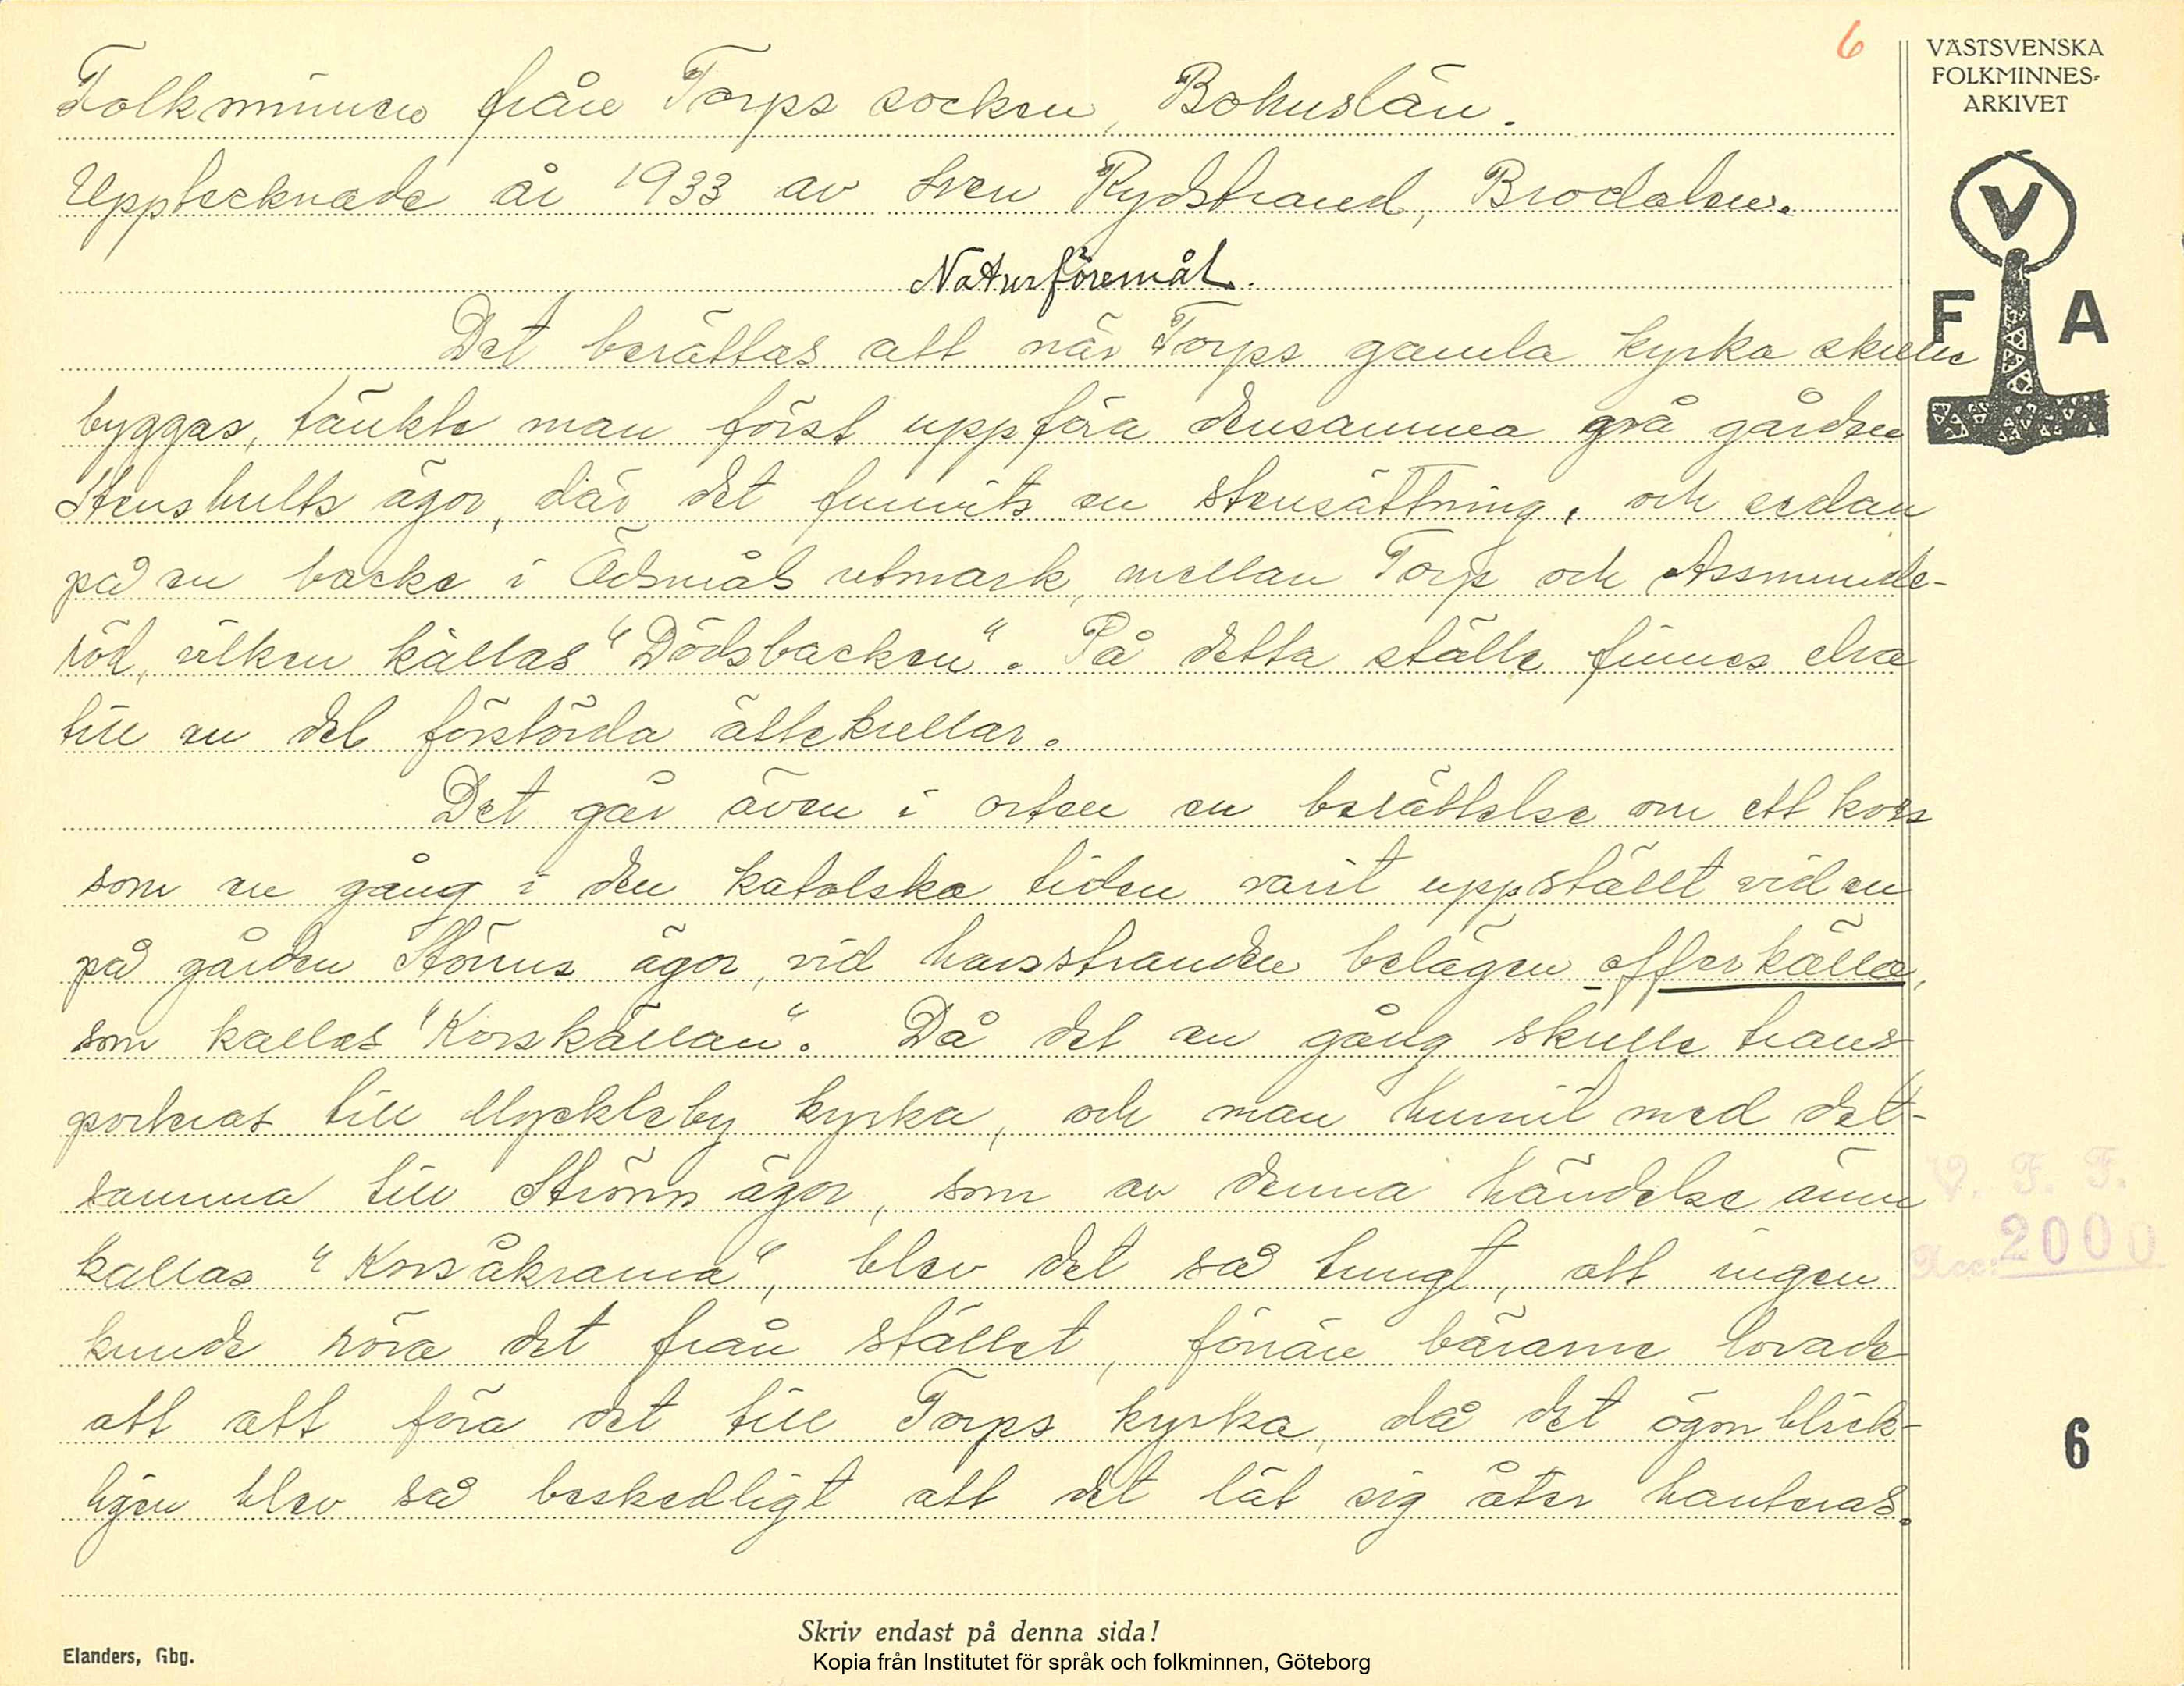 6
VÄSTSVENSKA
FOLKMINNES-
ARKIVET
V
F A
Folkminnen från Torps socken, Bohuslän.
Upptecknade år 1933 av Sven Rydstrand, Brodalen.
Naturföremål.
Det berättas att när Torps gamla kyrka skulle
byggas, tänkte man först uppföra densamma på gården
Stenshults ägor, där det funnits en stensättning, och sedan
på en backe i Ödsmåls utmark, mellan Torp och Assmunde-
röd, vilken kallas "Dödsbacken". På detta ställe finnes elva
till en del förstörda ättekullar.
Det går även i orten en berättelse om ett kors
som en gång i den katolska tiden varit uppställt vid en
på gården ägor, vid havsstranden belägen offerkälla,
som kallas "Korskällan". Då det en gång skulle trans-
porteras till Myckleby kyrka, och man hunnit med det-
samma till Ströms ägor, som av denna händelse ännu
kallas "Korsåkrarna", blev det så tungt, att ingen
kunde röra det från stället, förrän bärarne lovade
att att föra det till Torps kyrka, då det ögonblick-
ligen blev så beskedligt att det lät sig åter hanteras.
V. F. F.
Acc: 2000
6
Skriv endast på denna sida!
Elanders, Gbg.
Kopia från Institutet för språk och folkminnen, Göteborg